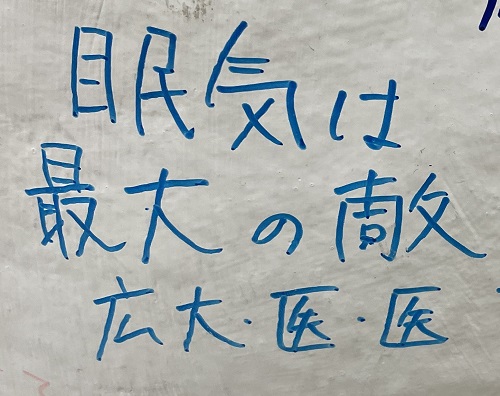 眠気は
最大の敵
広大・医・医